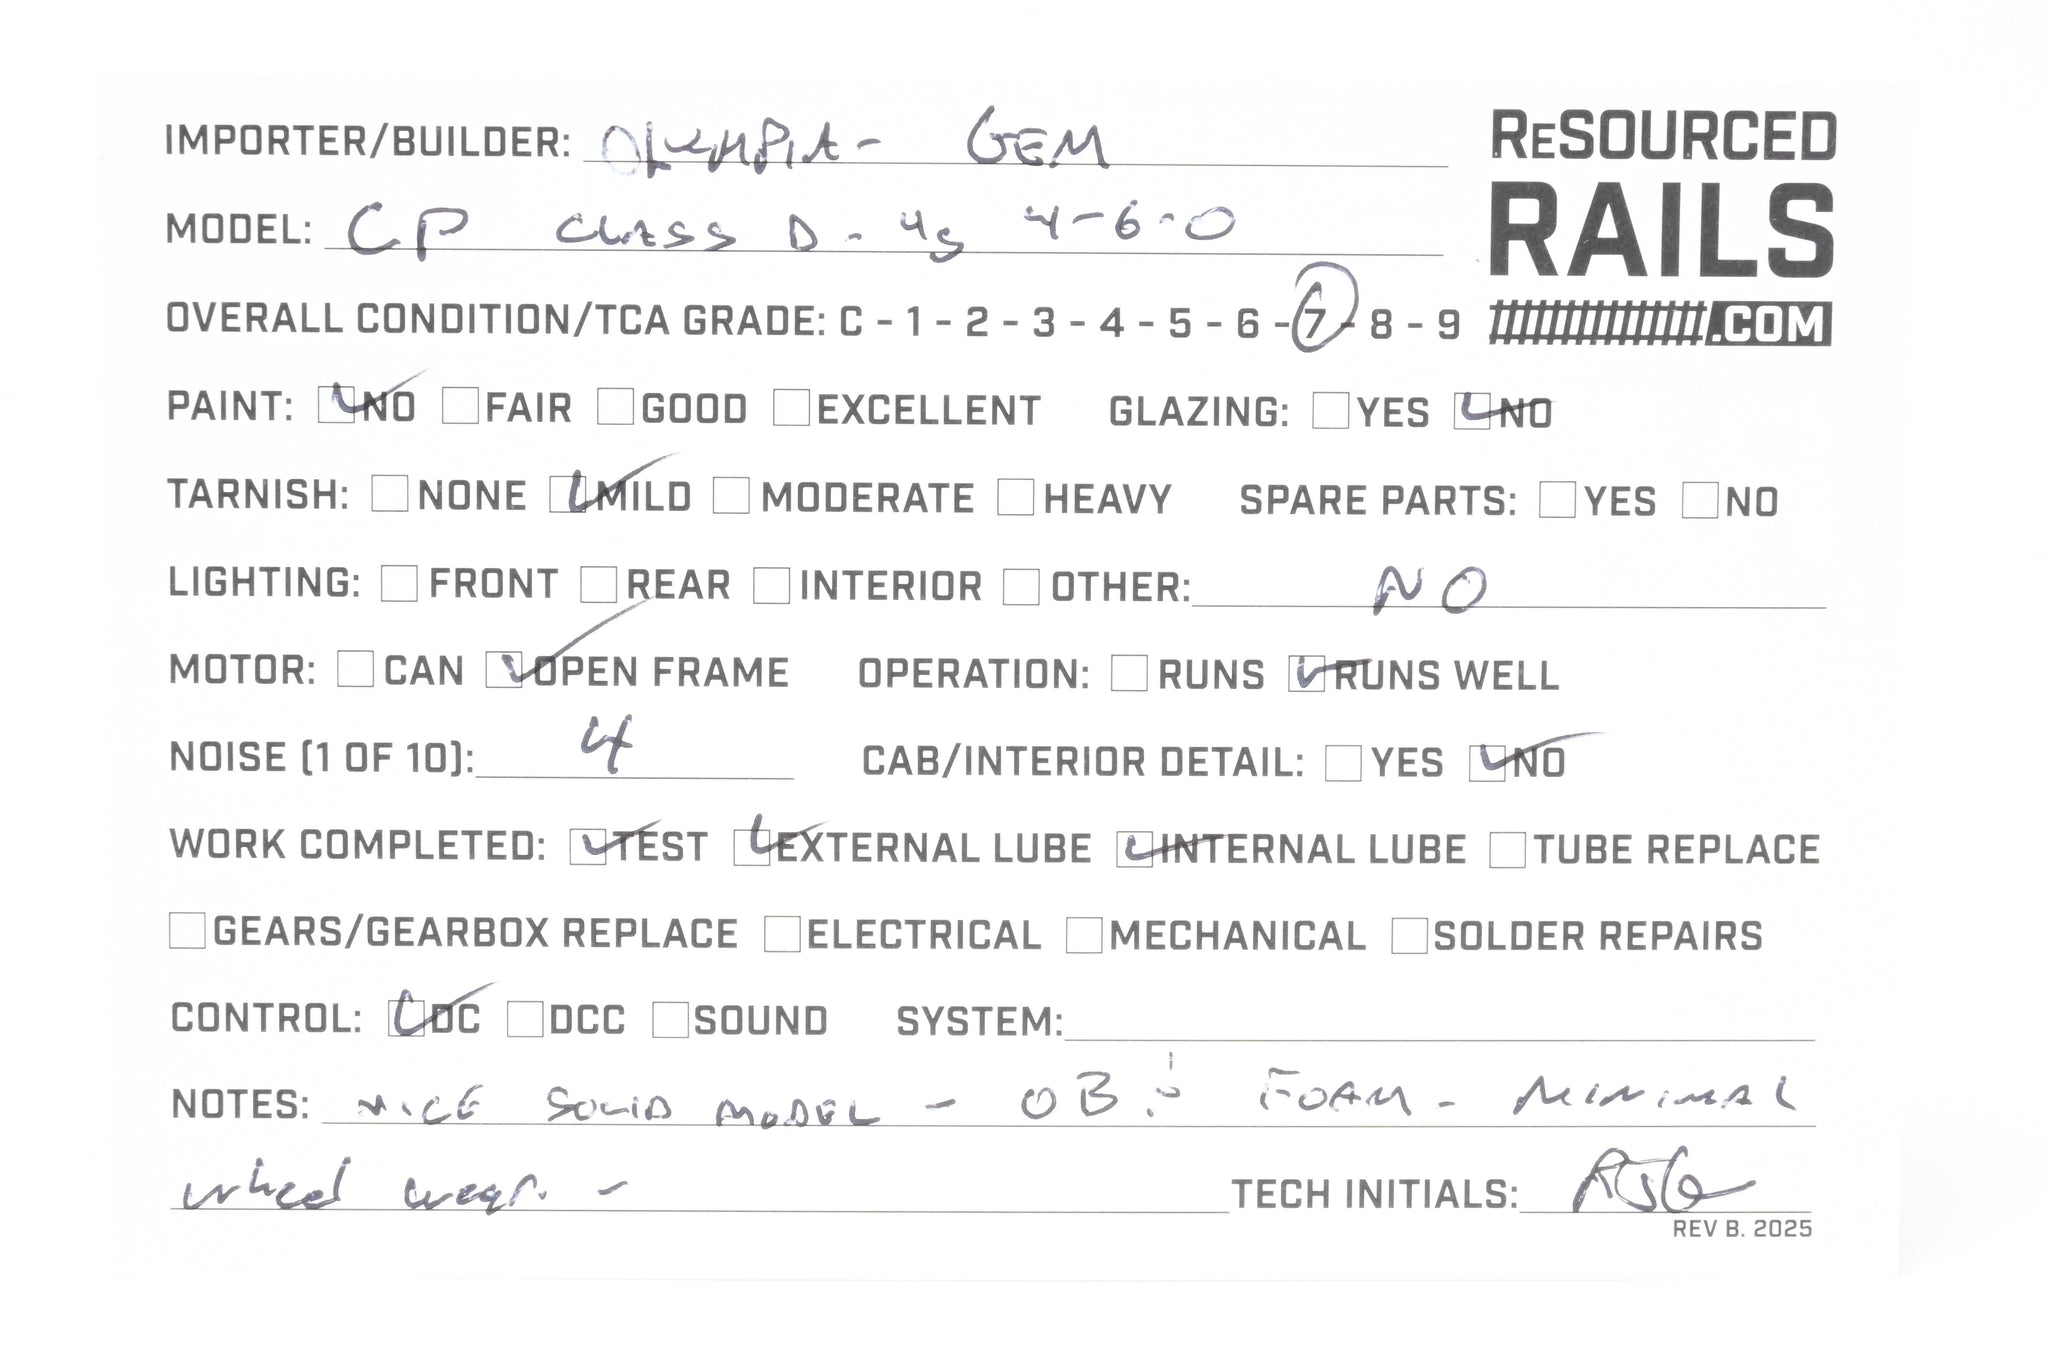 IMPORTER/BUILDER: OLYMPIA - GEM
RESOURCED
RAILS
.COM
MODEL: CP CLASS D-4g 4-6-0
OVERALL CONDITION/TCA GRADE: C - 1 - 2 - 3 - 4 - 5 - 6 - 7 - 8 - 9
PAINT: NO FAIR GOOD EXCELLENT GLAZING: YES NO
TARNISH: NONE MILD MODERATE HEAVY SPARE PARTS: YES NO
LIGHTING: FRONT REAR INTERIOR OTHER: NO
MOTOR: CAN OPEN FRAME OPERATION: RUNS RUNS WELL
NOISE (1 OF 10): 4 CAB/INTERIOR DETAIL: YES NO
WORK COMPLETED: TEST EXTERNAL LUBE INTERNAL LUBE TUBE REPLACE
GEARS/GEARBOX REPLACE ELECTRICAL MECHANICAL SOLDER REPAIRS
CONTROL: DC DCC SOUND SYSTEM:
NOTES: NICE SOLID MODEL - OB & FOAM - MINIMAL
wheel wear. - TECH INITIALS: RJG
REV B. 2025